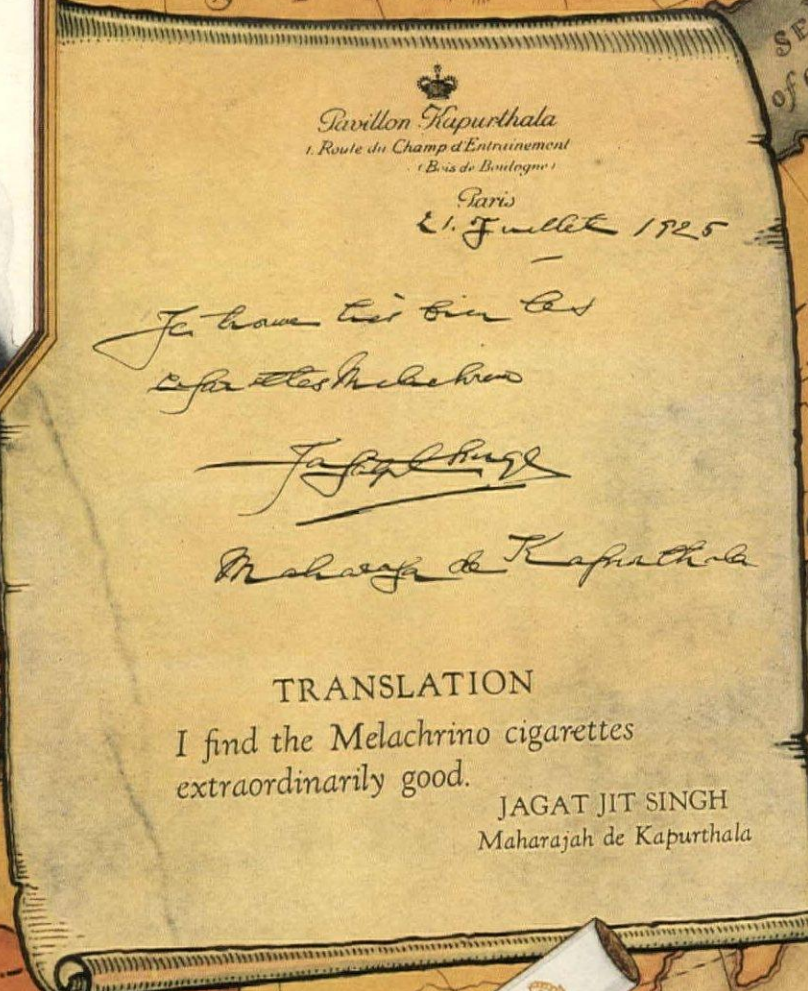 SE
of
Pavillon Kapurthala
1. Route du Champ d'Entrainement
(Bois de Boulogne)
Paris
21. Juillet 1925
Je trouve très bien les
cigarettes Melachrino
Jagatjit Singh
Maharaja de Kapurthala
TRANSLATION
I find the Melachrino cigarettes
extraordinarily good.
JAGAT JIT SINGH
Maharajah de Kapurthala